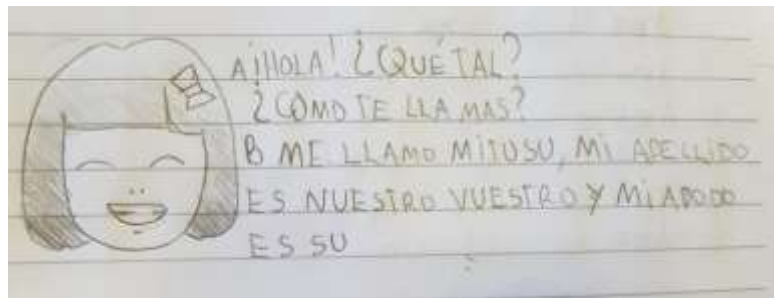 A ¡HOLA! ¿QUÉ TAL?
¿COMO TE LLAMAS?
B ME LLAMO MITUSU, MI APELLIDO
ES NUESTRO VUESTRO Y MI APODO
ES SU